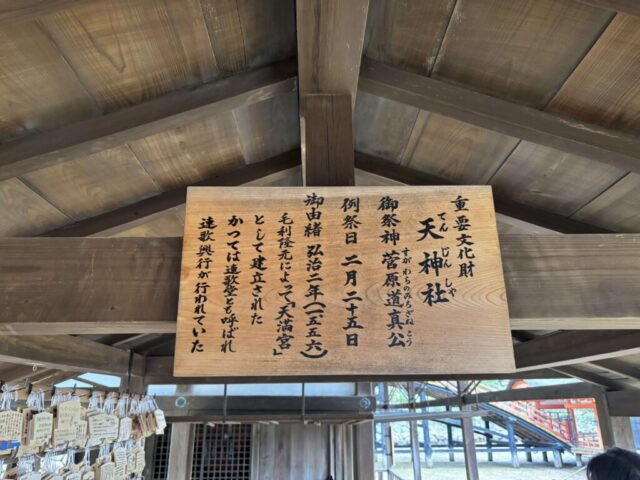 重要文化財
天神社
てんじんしゃ
御祭神 菅原道真公
すがわらのみちざねこう
例祭日 二月二十五日
御由緒 弘治二年(一五五六)
毛利隆元によって「天満宮」
として建立された
かつては連歌堂とも呼ばれ
連歌興行が行われていた